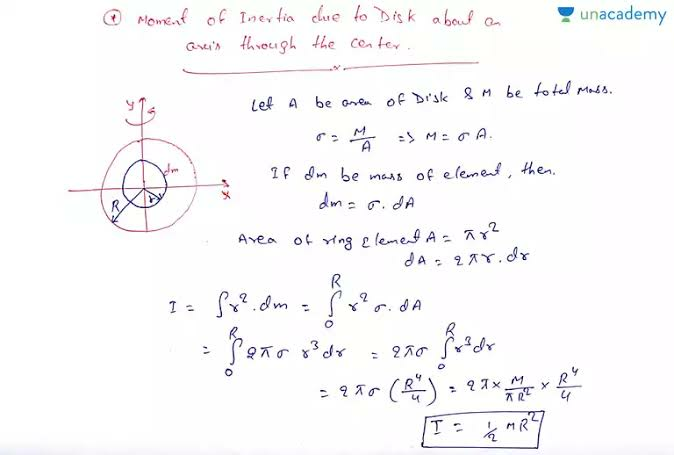 * Moment of Inertia due to Disk about an
axis through the center.
unacademy
Let A be area of Disk & M be total Mass.
σ = M/A => M = σ A.
If dm be mass of element, then.
dm = σ. dA
Area of ring Element A = πr²
dA = 2πr. dr
y
dm
R
r
x
I = ∫r². dm = ∫₀ᴿ r² σ. dA
= ∫₀ᴿ 2πσ r³dr = 2πσ ∫₀ᴿ r³dr
= 2πσ (R⁴/4) = 2π × M/πR² × R⁴/4
I = 1/2 MR²